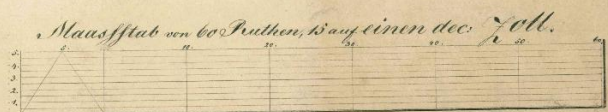 Maassstab von 60 Ruthen, 15 auf einen dec: Zoll.
5. 5. 10. 20. 30. 40. 50. 60.
4.
3.
2.
1.